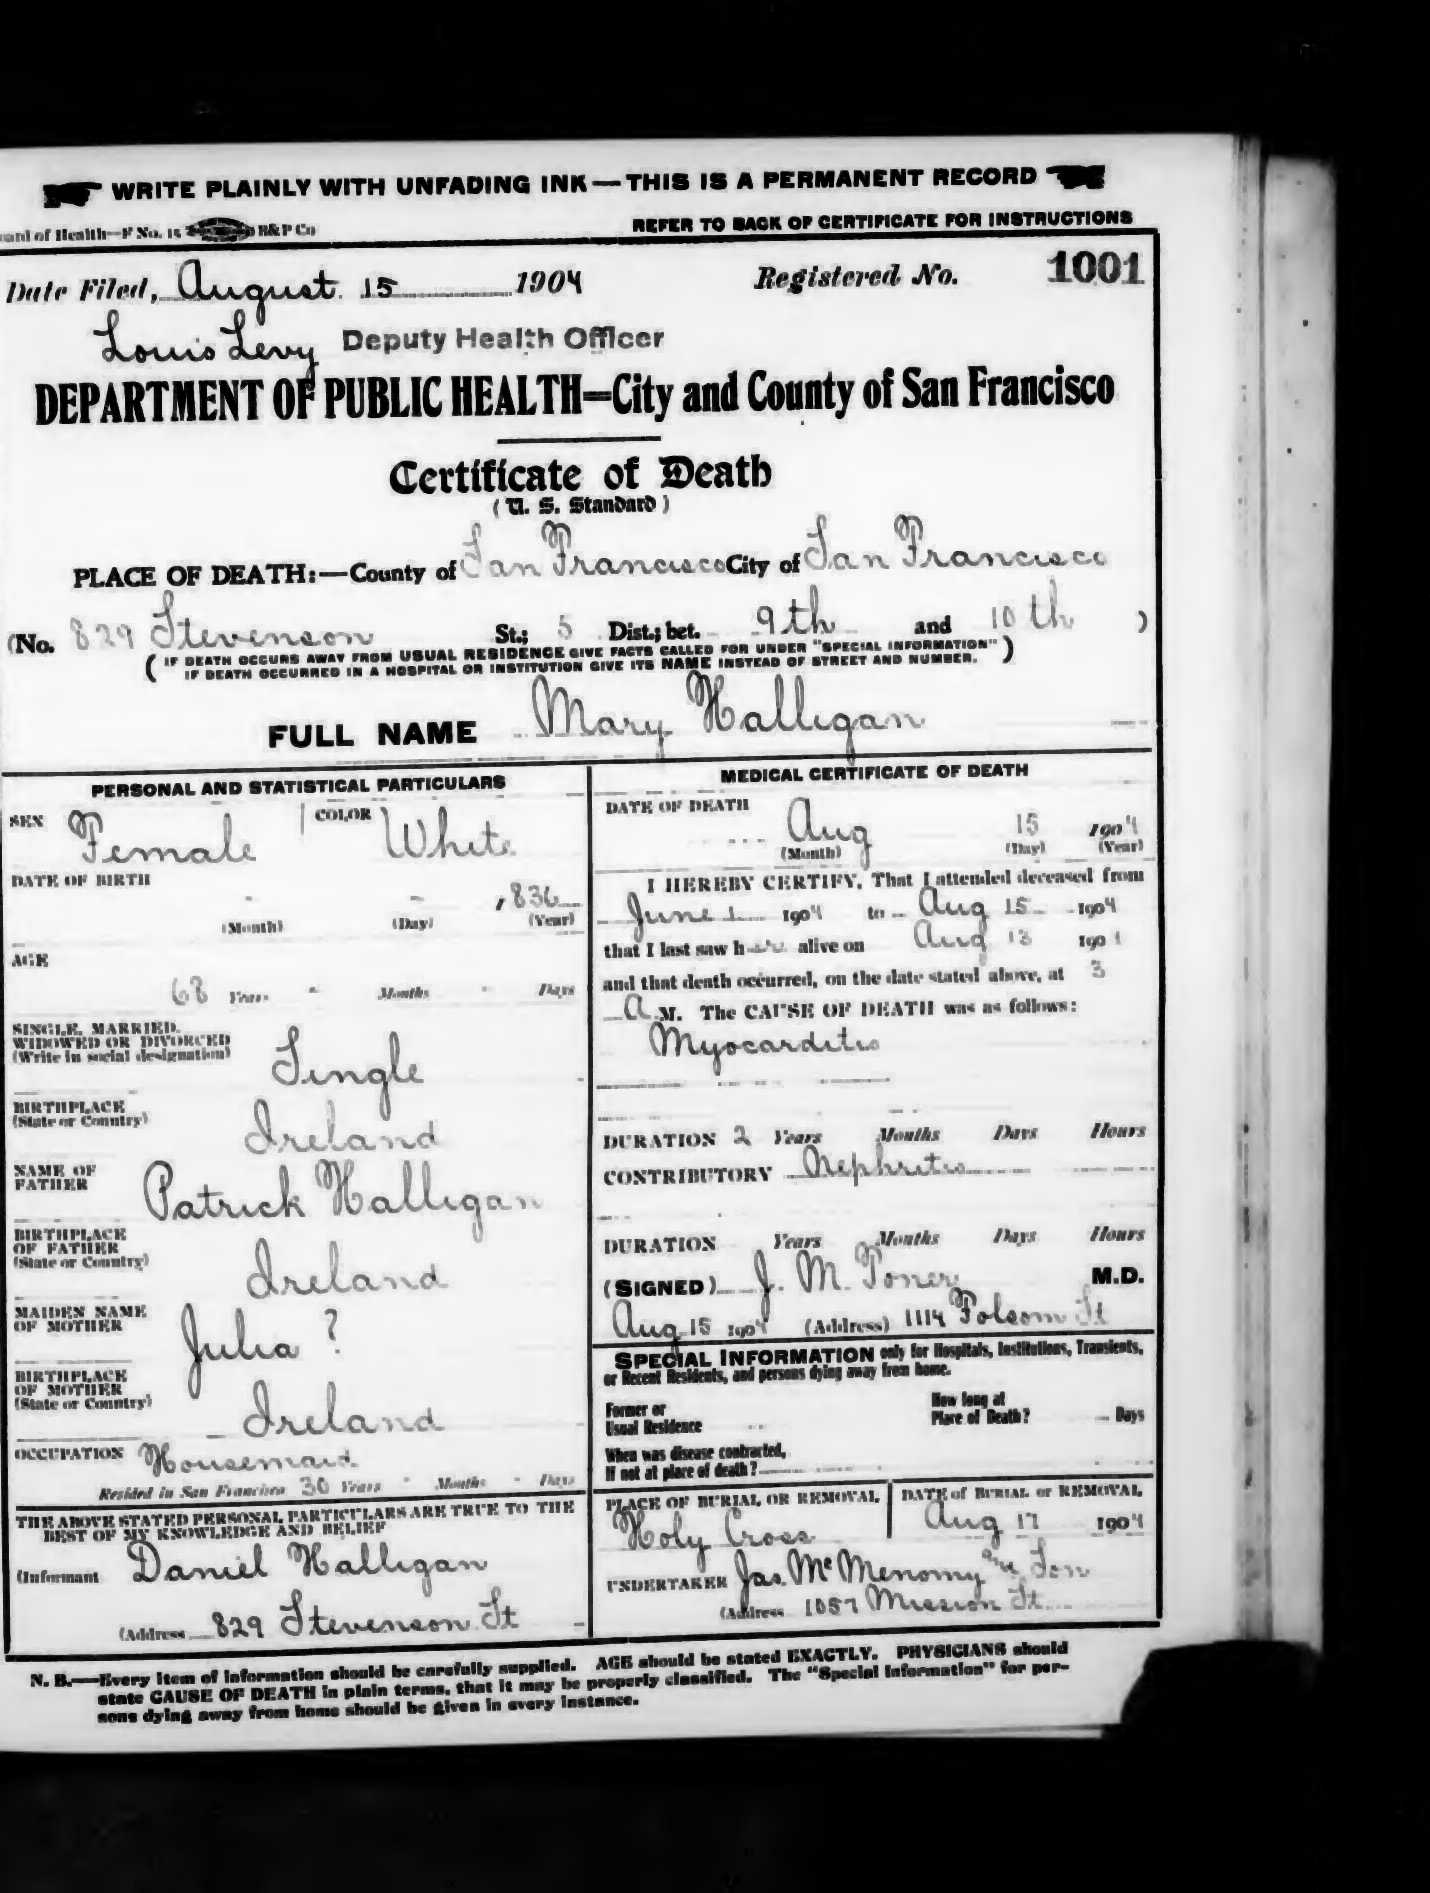 WRITE PLAINLY WITH UNFADING INK — THIS IS A PERMANENT RECORD
of Health—F No. 15 B&P Co REFER TO BACK OF CERTIFICATE FOR INSTRUCTIONS
Date Filed, August 15 1904 Registered No. 1001
Louis Levy Deputy Health Officer
DEPARTMENT OF PUBLIC HEALTH=City and County of San Francisco
Certificate of Death
(U. S. Standard)
PLACE OF DEATH:—County of San Francisco City of San Francisco
(No. 829 Stevenson St.; 5 Dist.; bet. 9th and 10th )
( IF DEATH OCCURS AWAY FROM USUAL RESIDENCE GIVE FACTS CALLED FOR UNDER "SPECIAL INFORMATION" )
IF DEATH OCCURRED IN A HOSPITAL OR INSTITUTION GIVE ITS NAME INSTEAD OF STREET AND NUMBER.
FULL NAME Mary Halligan
PERSONAL AND STATISTICAL PARTICULARS
SEX Female COLOR White
DATE OF BIRTH
1836
(Month) (Day) (Year)
AGE
68 Years " Months " Days
SINGLE, MARRIED,
WIDOWED OR DIVORCED
(Write in social designation) Single
BIRTHPLACE
(State or Country) Ireland
NAME OF
FATHER Patrick Halligan
BIRTHPLACE
OF FATHER
(State or Country) Ireland
MAIDEN NAME
OF MOTHER Julia ?
BIRTHPLACE
OF MOTHER
(State or Country) Ireland
OCCUPATION Housemaid
Resided in San Francisco 30 Years " Months " Days
THE ABOVE STATED PERSONAL PARTICULARS ARE TRUE TO THE
BEST OF MY KNOWLEDGE AND BELIEF
(Informant Daniel Halligan
(Address 829 Stevenson St
MEDICAL CERTIFICATE OF DEATH
DATE OF DEATH
Aug 15 1904
(Month) (Day) (Year)
I HEREBY CERTIFY, That I attended deceased from
June 1 1904 to Aug 15 1904
that I last saw her alive on Aug 13 1904
and that death occurred, on the date stated above, at 3
A M. The CAUSE OF DEATH was as follows:
Myocarditis
DURATION 2 Years Months Days Hours
CONTRIBUTORY Nephritis
DURATION Years Months Days Hours
(SIGNED) J. M. Toner M.D.
Aug 15 1904 (Address) 1114 Folsom St
SPECIAL INFORMATION only for Hospitals, Institutions, Transients,
or Recent Residents, and persons dying away from home.
Former or
Usual Residence
How long at
Place of Death? Days
When was disease contracted,
If not at place of death?
PLACE OF BURIAL OR REMOVAL
Holy Cross
DATE of BURIAL or REMOVAL
Aug 17 1904
UNDERTAKER Jas. McMenomy and Son
(Address 1057 Mission St
N. B.—Every item of information should be carefully supplied. AGE should be stated EXACTLY. PHYSICIANS should
state CAUSE OF DEATH in plain terms, that it may be properly classified. The "Special Information" for per-
sons dying away from home should be given in every instance.